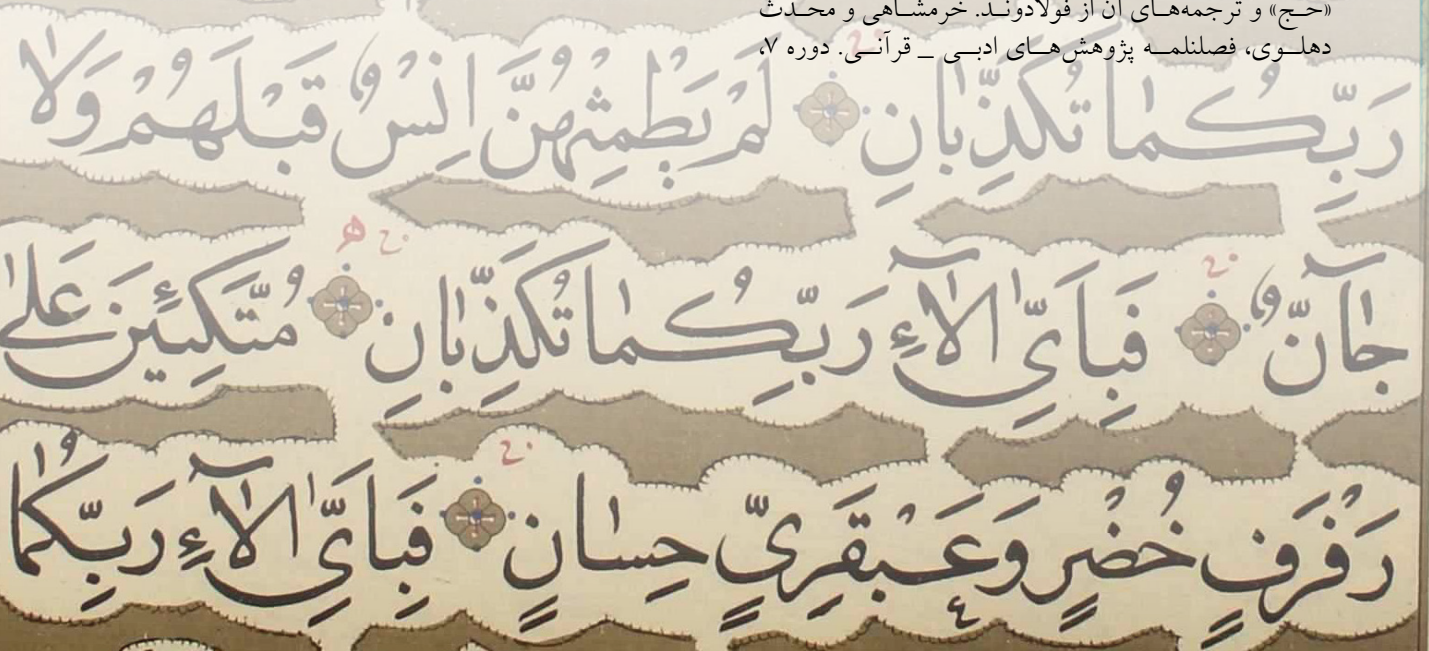 «حـج» و ترجمه‌هـای آن از فولادونـد. خرمشـاهی و محـدث
دهلــوی، فصلنلمــه پژوهش هــای ادبــی _ قرآنــی. دوره ۷،
رَبِّكُمَا تُكَذِّبَانِ لَمْ يَطْمِثْهُنَّ اِنْسٌ قَبْلَهُمْ وَلَا
جَآنٌّ فَبِاَىِّ اٰلَآءِ رَبِّكُمَا تُكَذِّبَانِ مُتَّكِـٔينَ عَلٰى
رَفْرَفٍ خُضْرٍ وَعَبْقَرِىٍّ حِسَانٍ فَبِاَىِّ اٰلَآءِ رَبِّكُمَا